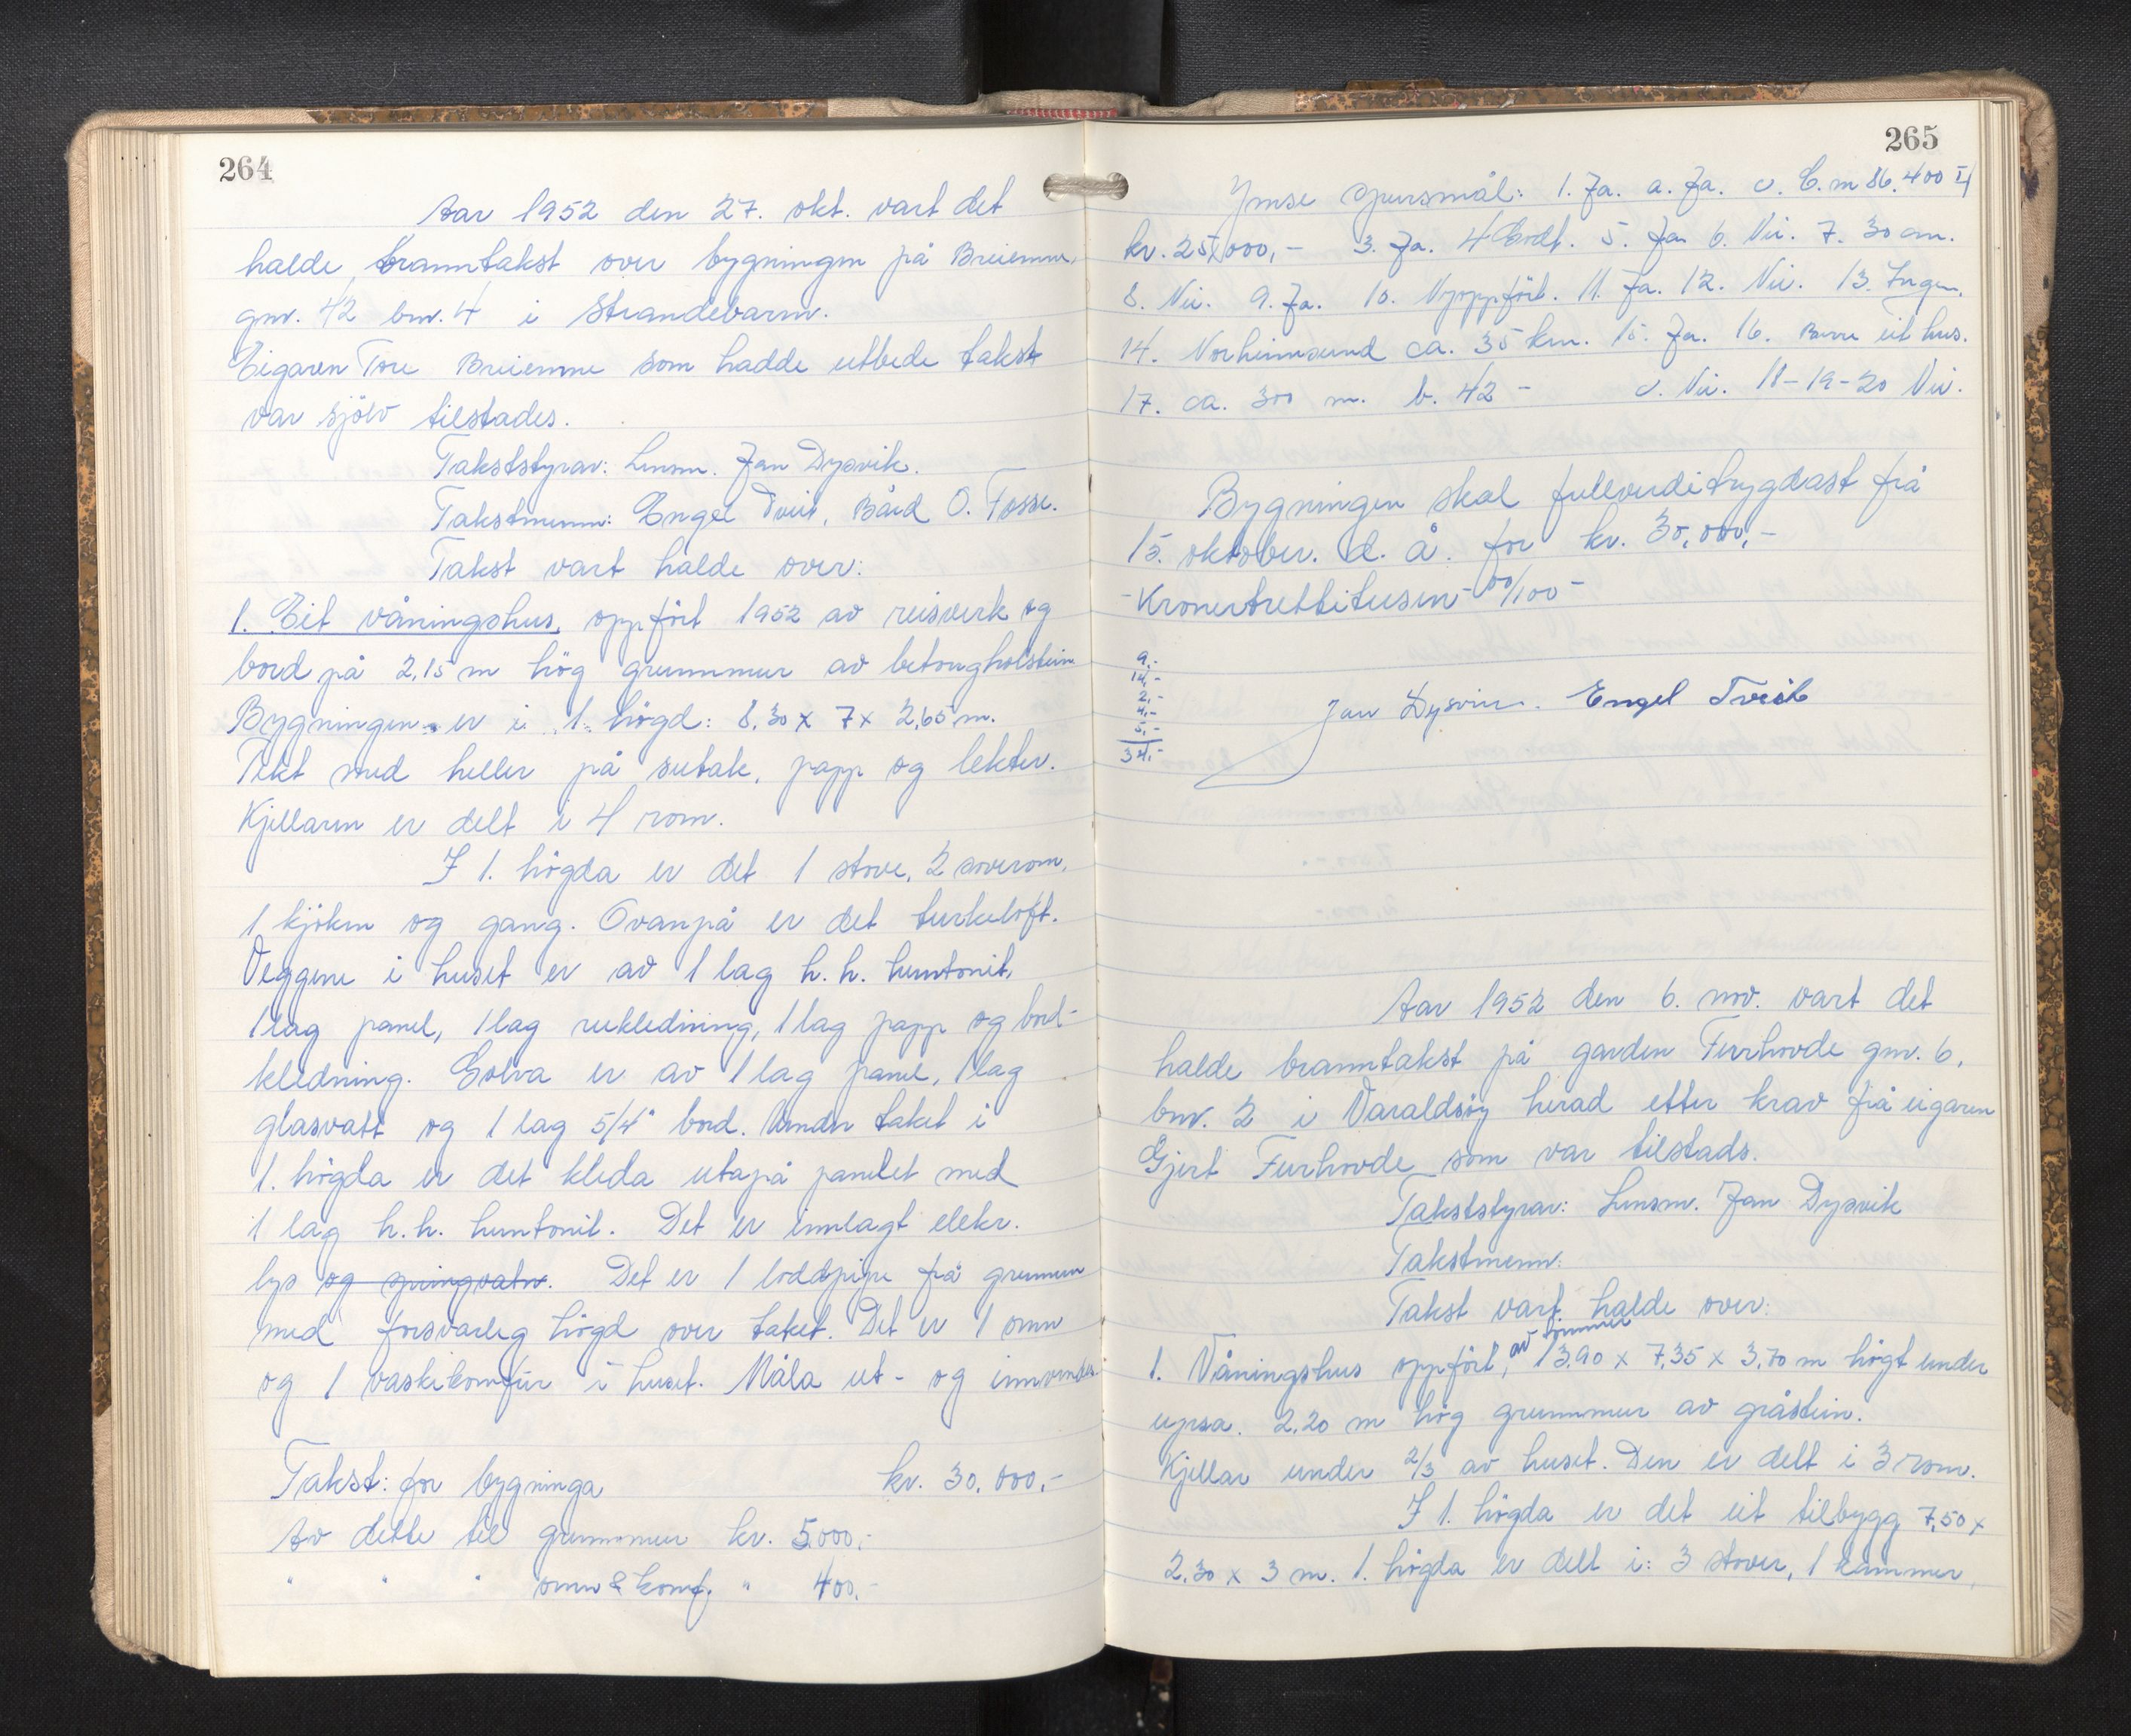 264
Aar 1952 den 27. okt. vart det
halde branntakst over bygningen på Breiemne,
gnr. 42 bnr. 4 i Strandebarm.
Eigaren Tore Breiemne som hadde utbede takst
var sjölv tilstades.
Takststyrar: Lensm. Jan Dysvik.
Takstmenn: Engel Tveit, Bård O. Fosse.
Takst vart halde over:
1. Eit våningshus, oppfört 1952 av reisverk og
bord på 2,15 m hög grunnmur av betongholstein
Bygningen er i 1. högd: 8,30 x 7 x 2,65 m.
Tekt med heller på sutak, papp og lekter.
Kjellaren er delt i 4 rom.
I 1. högda er det 1 stove, 2 soverom,
1 kjöken og gang. Ovanpå er det turkeloft.
Veggene i huset er av 1 lag h.h. huntonit,
1 lag panel, 1 lag rukledning, 1 lag papp og bord-
kledning. Golva er av 1 lag panel, 1 lag
glasvatt og 1 lag 5/4" bord. Under taket i
1. högda er det kleda utapå panelet med
1 lag h.h. huntonit. Det er innlagt elekr.
lys og springvatn. Det er 1 loddpipe frå grunnen
med forsvarleg högd over taket. Det er 1 omn
og 1 vaskekomfür i huset. Måla ut- og innvendes.
Takst: for bygninga kr. 30.000,-
Av dette til grunnmur kr. 5.000,-
" " " omn & komf. " 400,-
265
Ymse spursmål: 1. Ja. a. Ja. c. C. m 86.400 II
kr. 25.000,- 3. Ja. 4 Godt. 5. Ja 6. Nei. 7. 30 cm.
8. Nei. 9. Ja. 10. Nyoppfört. 11. Ja. 12. Nei. 13. Ingen.
14. Norheimsund ca. 35 km. 15. Ja. 16. Berre eit hus.
17. ca. 300 m. b. 42 - c. Nei. 18-19-20 Nei.
Bygningen skal fullverditrygdast frå
15. oktober. d. å. for kr. 30.000,-
-Kronertrettitusen- 00/100 -
9,-
14,-
2,-
4,-
5,-
34,-
Jan Dysvik. Engel Tveit
Aar 1952 den 6. nov. vart det
halde branntakst på garden Furhovde gnr. 6,
bnr. 2 i Varaldsöy herad etter krav frå eigaren
Gjert Furhovde som var tilstads.
Takststyrar: Lensm. Jan Dysvik
Takstmenn:
Takst vart halde over:
1. Våningshus oppfört, av tömmer 13,90 x 7,35 x 3,70 m högt under
upsa. 2,20 m hög grunnmur av gråstein.
Kjellar under 2/3 av huset. Den er delt i 3 rom.
I 1. högda er det eit tilbygg 7,50 x
2,30 x 3 m. 1. högda er delt i: 3 stover, 1 kammer,